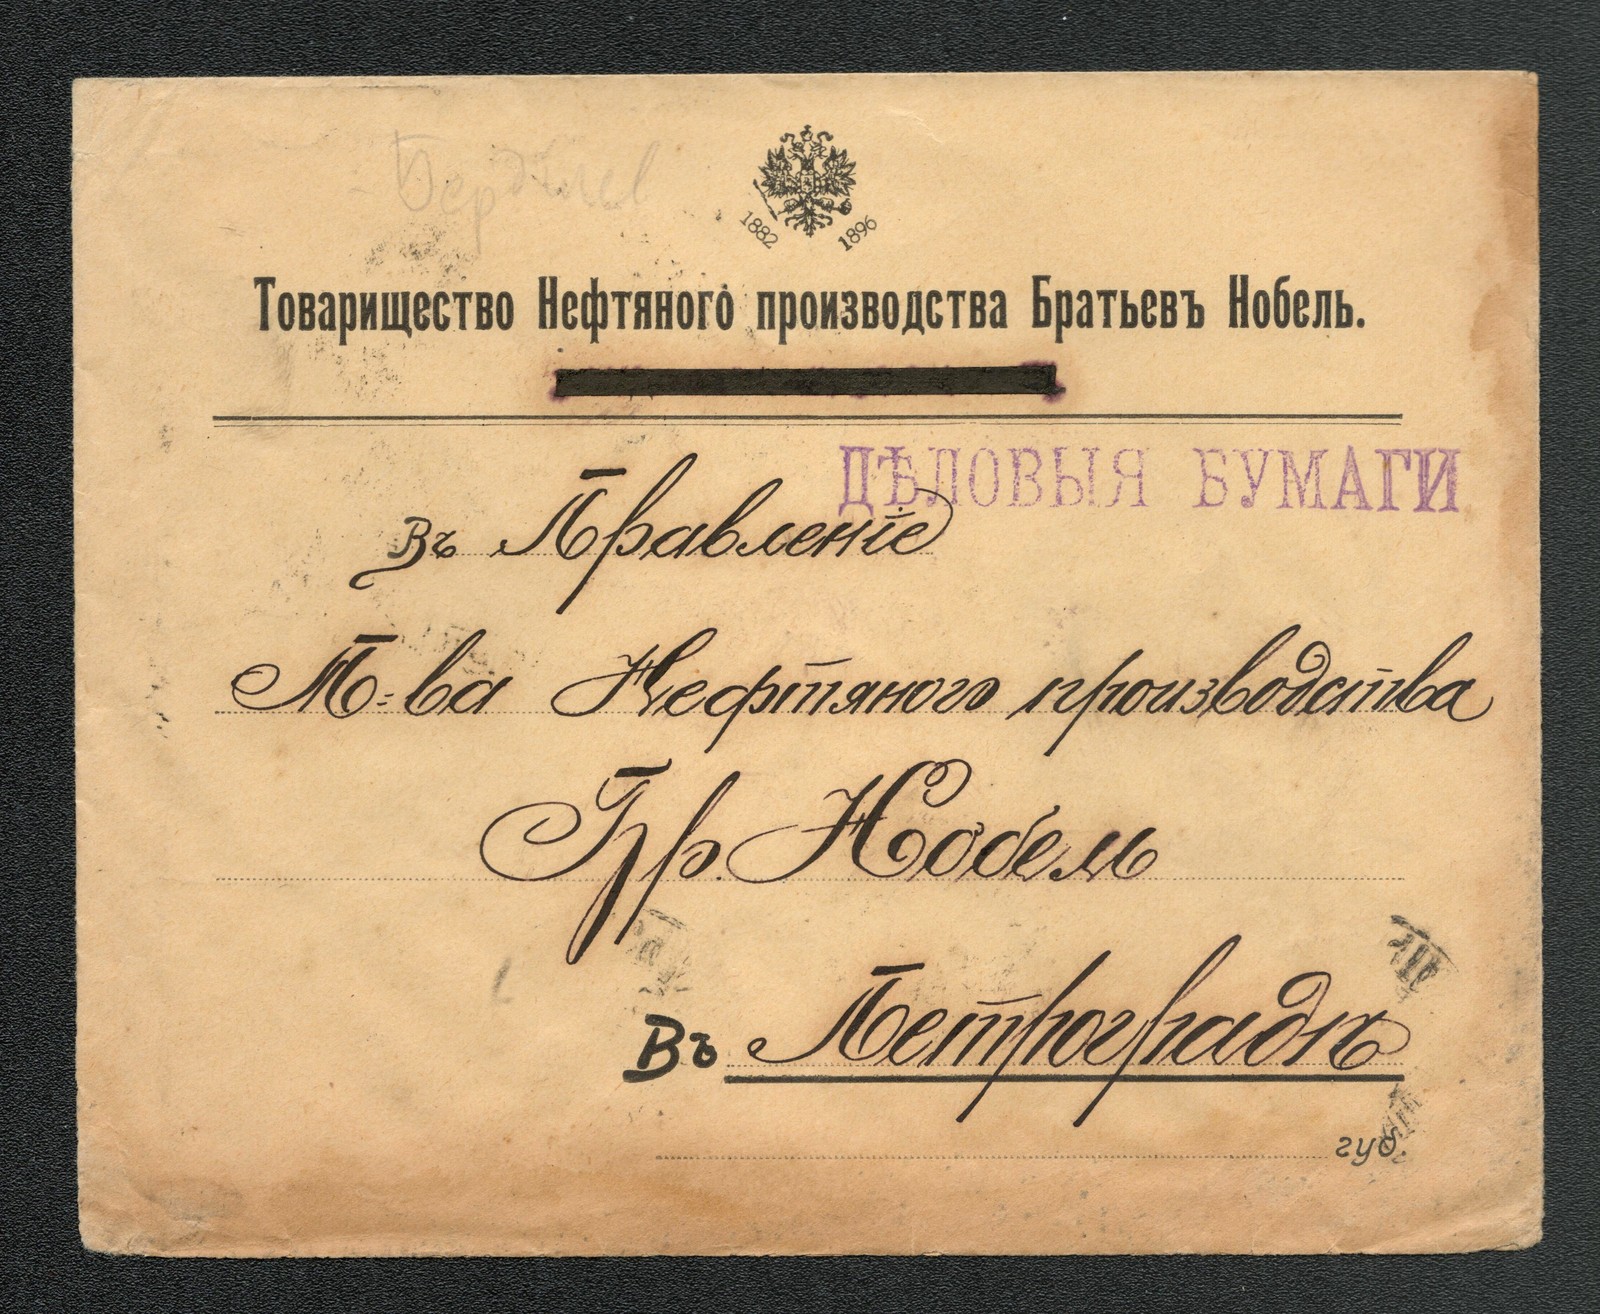 1882 1896
Товарищество Нефтяного производства Братьевъ Нобель.
ДѢЛОВЫЯ БУМАГИ
Въ Правленіе
Т-ва Нефтяного производства
Бр. Нобель
Въ Петроградъ
губ.